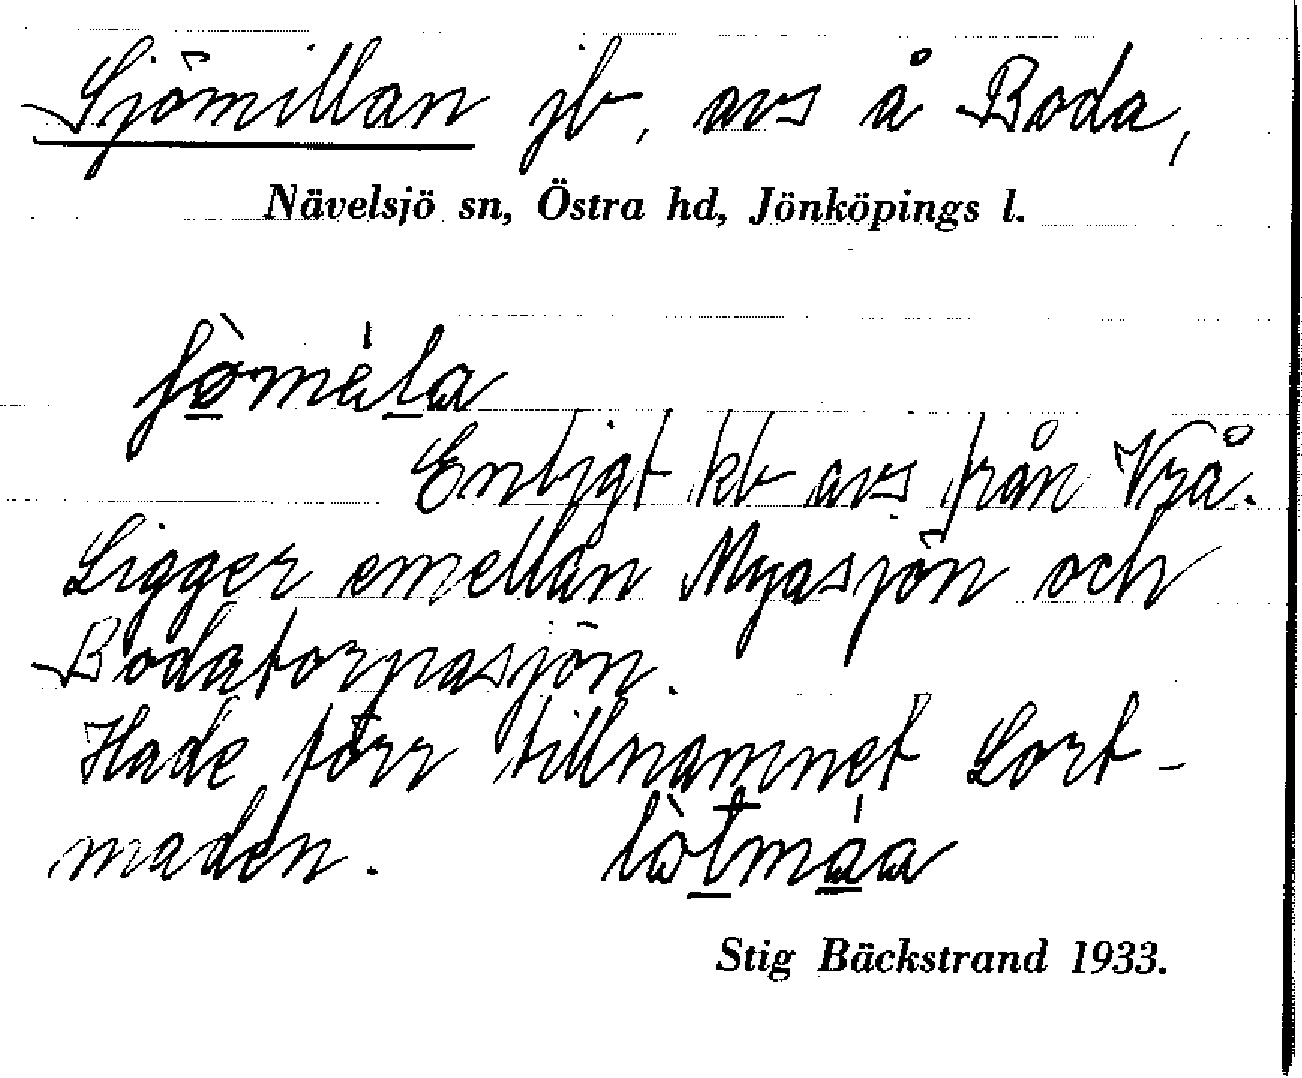 Sjömillan jb, avs å Boda,
Nävelsjö sn, Östra hd, Jönköpings l.
Enligt kb avs från Vrå.
Ligger emellan Myasjön och
Bodatorpasjön.
Hade förr tillnamnet Lort-
maden.
Stig Bäckstrand 1933.